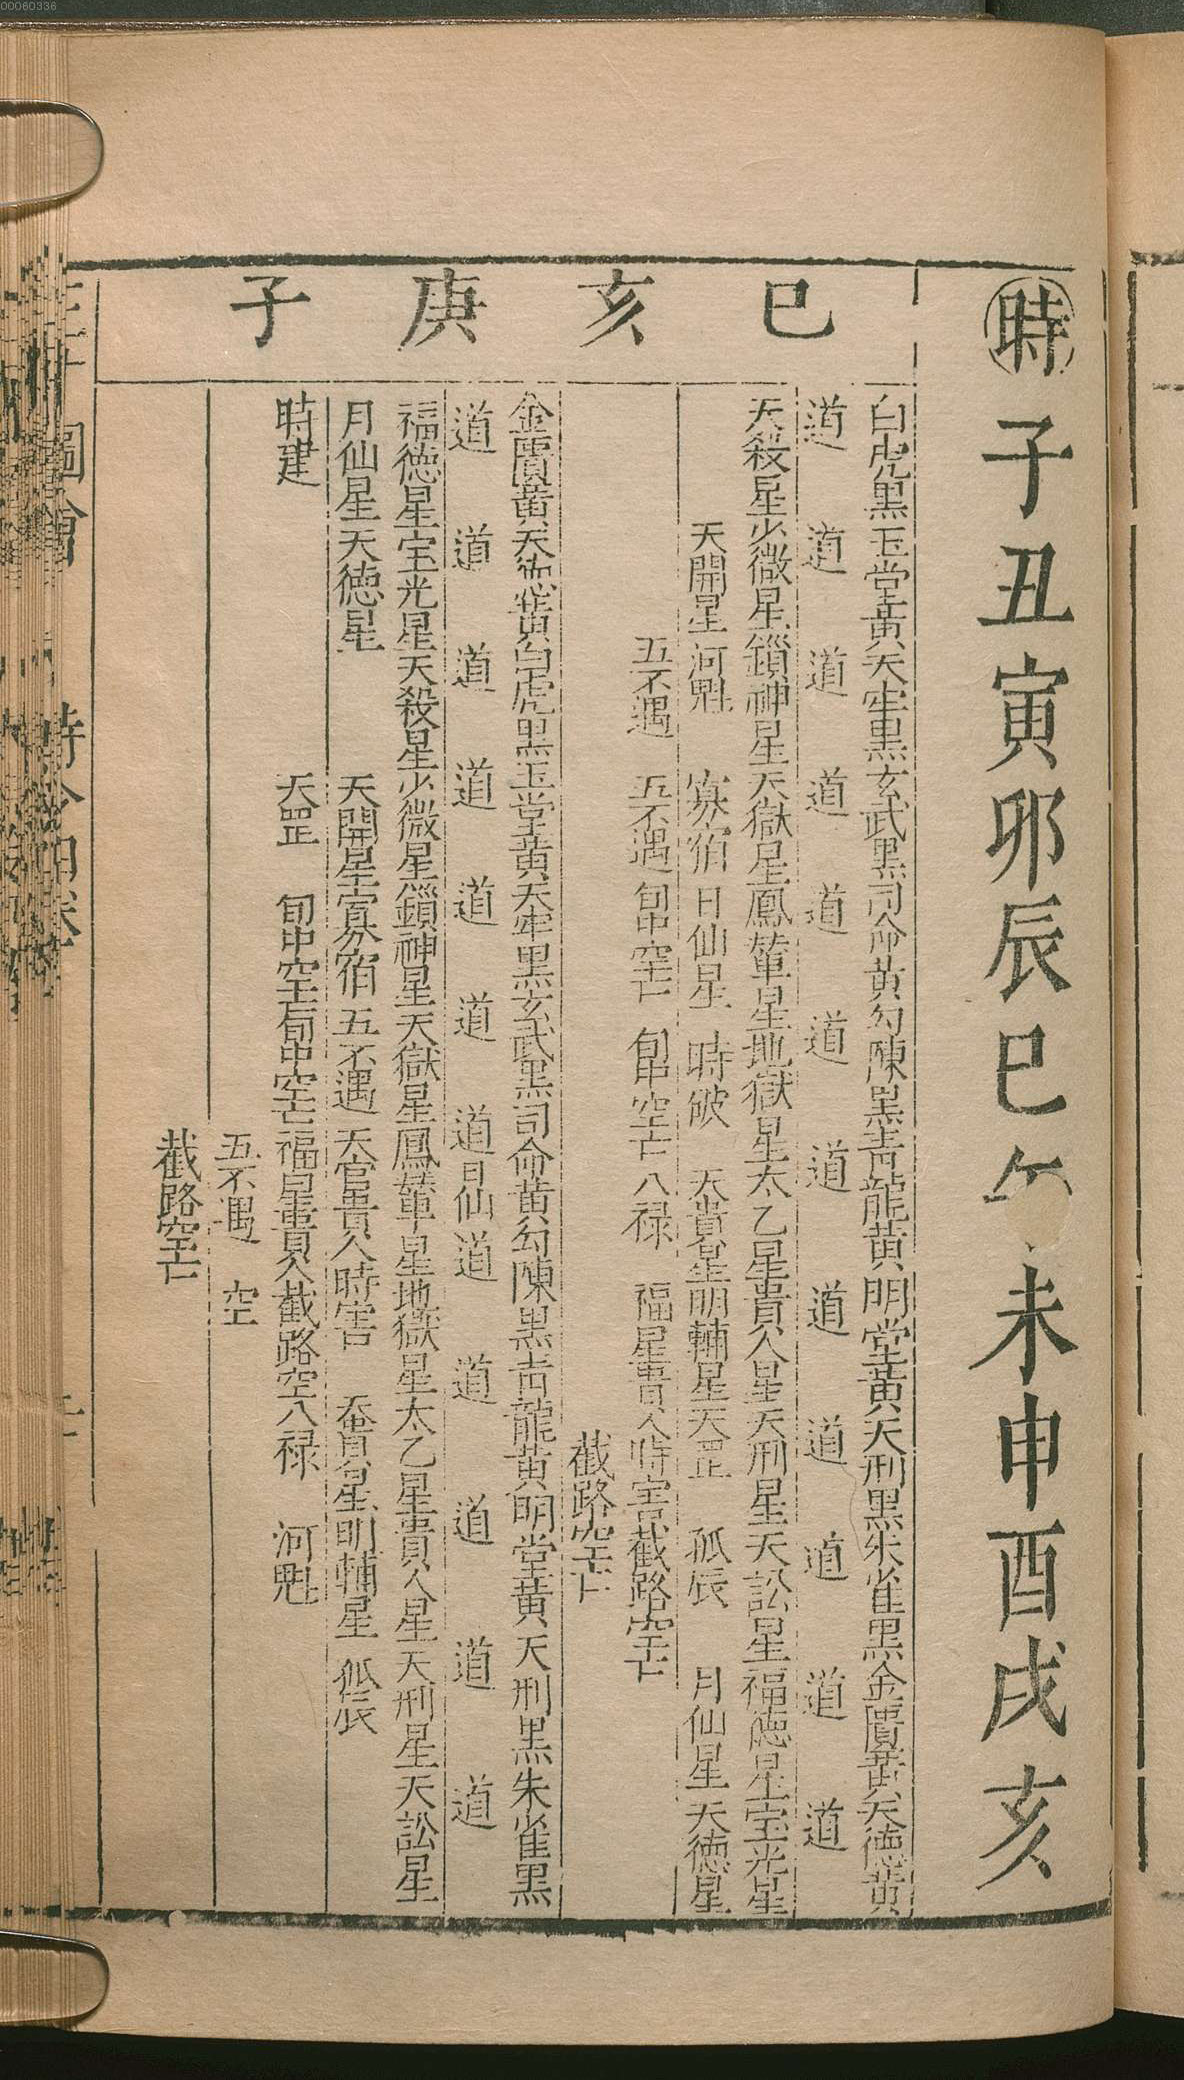 00060336
時子丑寅卯辰巳午未申酉戌亥
巳亥庚子
白虎黑玉堂黃天牢黑玄武黑司命黃勾陳黑青龍黃明堂黃天刑黑朱雀黑金匱黃天德黃
道道道道道道道道道道道道
天殺星少微星鎖神星天獄星鳳輦星地獄星太乙星貴人星天刑星天訟星福德星宝光星
天開星河魁寡宿日仙星時破天貴星明輔星天罡孤辰月仙星天德星
五不遇五不遇旬中空亡旬中空亡八禄福星貴人時害截路空亡
截路空亡
金匱黃天德黃白虎黑玉堂黃天牢黑玄武黑司命黃勾陳黑青龍黃明堂黃天刑黑朱雀黑
道道道道道道道日仙道道道道道
福德星宝光星天殺星少微星鎖神星天獄星鳳輦星地獄星太乙星貴人星天刑星天訟星
月仙星天德星天開星寡宿五不遇天官貴人時害天貴星明輔星孤辰
時建天罡旬中空亡旬中空亡福星貴人截路空八禄河魁
五不遇空
截路空亡